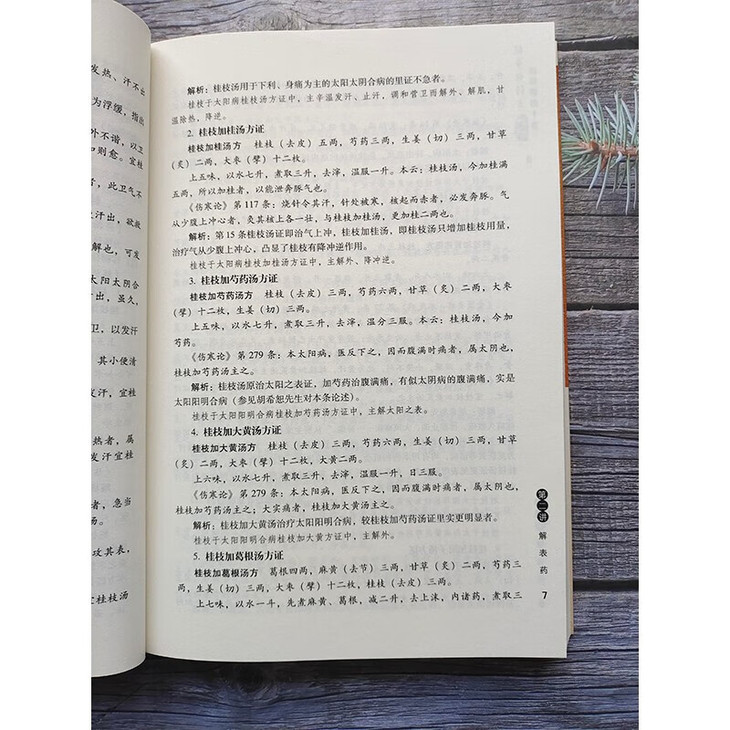 发热、汗不出
为浮缓，指出
外不谐，以卫
和则愈。宜桂
者，此卫气不
汗出，欲救
解也，可发
太阳太阴合
汗出，虽久，
卫，以发汗
其小便清
发汗，宜桂
热者，属
发汗宜桂
者，急当
攻其表，
桂枝汤
解析：桂枝汤用于下利、身痛为主的太阳太阴合病的里证不急者。
桂枝于太阳病桂枝汤方证中，主辛温发汗、止汗，调和营卫而解外、解肌，甘
温除热，降逆。
2. 桂枝加桂汤方证
桂枝加桂汤方 桂枝（去皮）五两，芍药三两，生姜（切）三两，甘草
（炙）二两，大枣（擘）十二枚。
上五味，以水七升，煮取三升，去滓，温服一升。本云：桂枝汤，今加桂满
五两，所以加桂者，以能泄奔豚气也。
《伤寒论》第 117 条：烧针令其汗，针处被寒，核起而赤者，必发奔豚。气
从少腹上冲心者，灸其核上各一壮，与桂枝加桂汤，更加桂二两也。
解析：第 15 条桂枝汤证即治气上冲，桂枝加桂汤，即桂枝汤只增加桂枝用量，
治疗气从少腹上冲心，凸显了桂枝有降冲逆作用。
桂枝于太阳病桂枝加桂汤方证中，主解外、降冲逆。
3. 桂枝加芍药汤方证
桂枝加芍药汤方 桂枝（去皮）三两，芍药六两，甘草（炙）二两，大枣
（擘）十二枚，生姜（切）三两。
上五味，以水七升，煮取三升，去滓，温分三服。本云：桂枝汤，今加
芍药。
《伤寒论》第 279 条：本太阳病，医反下之，因而腹满时痛者，属太阴也，
桂枝加芍药汤主之。
解析：桂枝汤原治太阳之表证，加芍药治腹满痛，有似太阴病的腹满痛，实是
太阳阳明合病（参见胡希恕先生对本条论述）。
桂枝于太阳阳明合病桂枝加芍药汤方证中，主解太阳之表。
4. 桂枝加大黄汤方证
桂枝加大黄汤方 桂枝（去皮）三两，芍药六两，生姜（切）三两，甘草
（炙）二两，大枣（擘）十二枚，大黄二两。
上六味，以水七升，煮取三升，去滓，温服一升，日三服。
《伤寒论》第 279 条：本太阳病，医反下之，因而腹满时痛者，属太阴也，
桂枝加芍药汤主之；大实痛者，桂枝加大黄汤主之。
解析：桂枝加大黄汤治疗太阳阳明合病，较桂枝加芍药汤证里实更明显者。
桂枝于太阳阳明合病桂枝加大黄汤方证中，主解外。
5. 桂枝加葛根汤方证
桂枝加葛根汤方 葛根四两，麻黄（去节）三两，甘草（炙）二两，芍药三
两，生姜（切）三两，大枣（擘）十二枚，桂枝（去皮）三两。
上七味，以水一斗，先煮麻黄、葛根，减二升，去上沫，内诸药，煮取三
第二讲
解表药
7